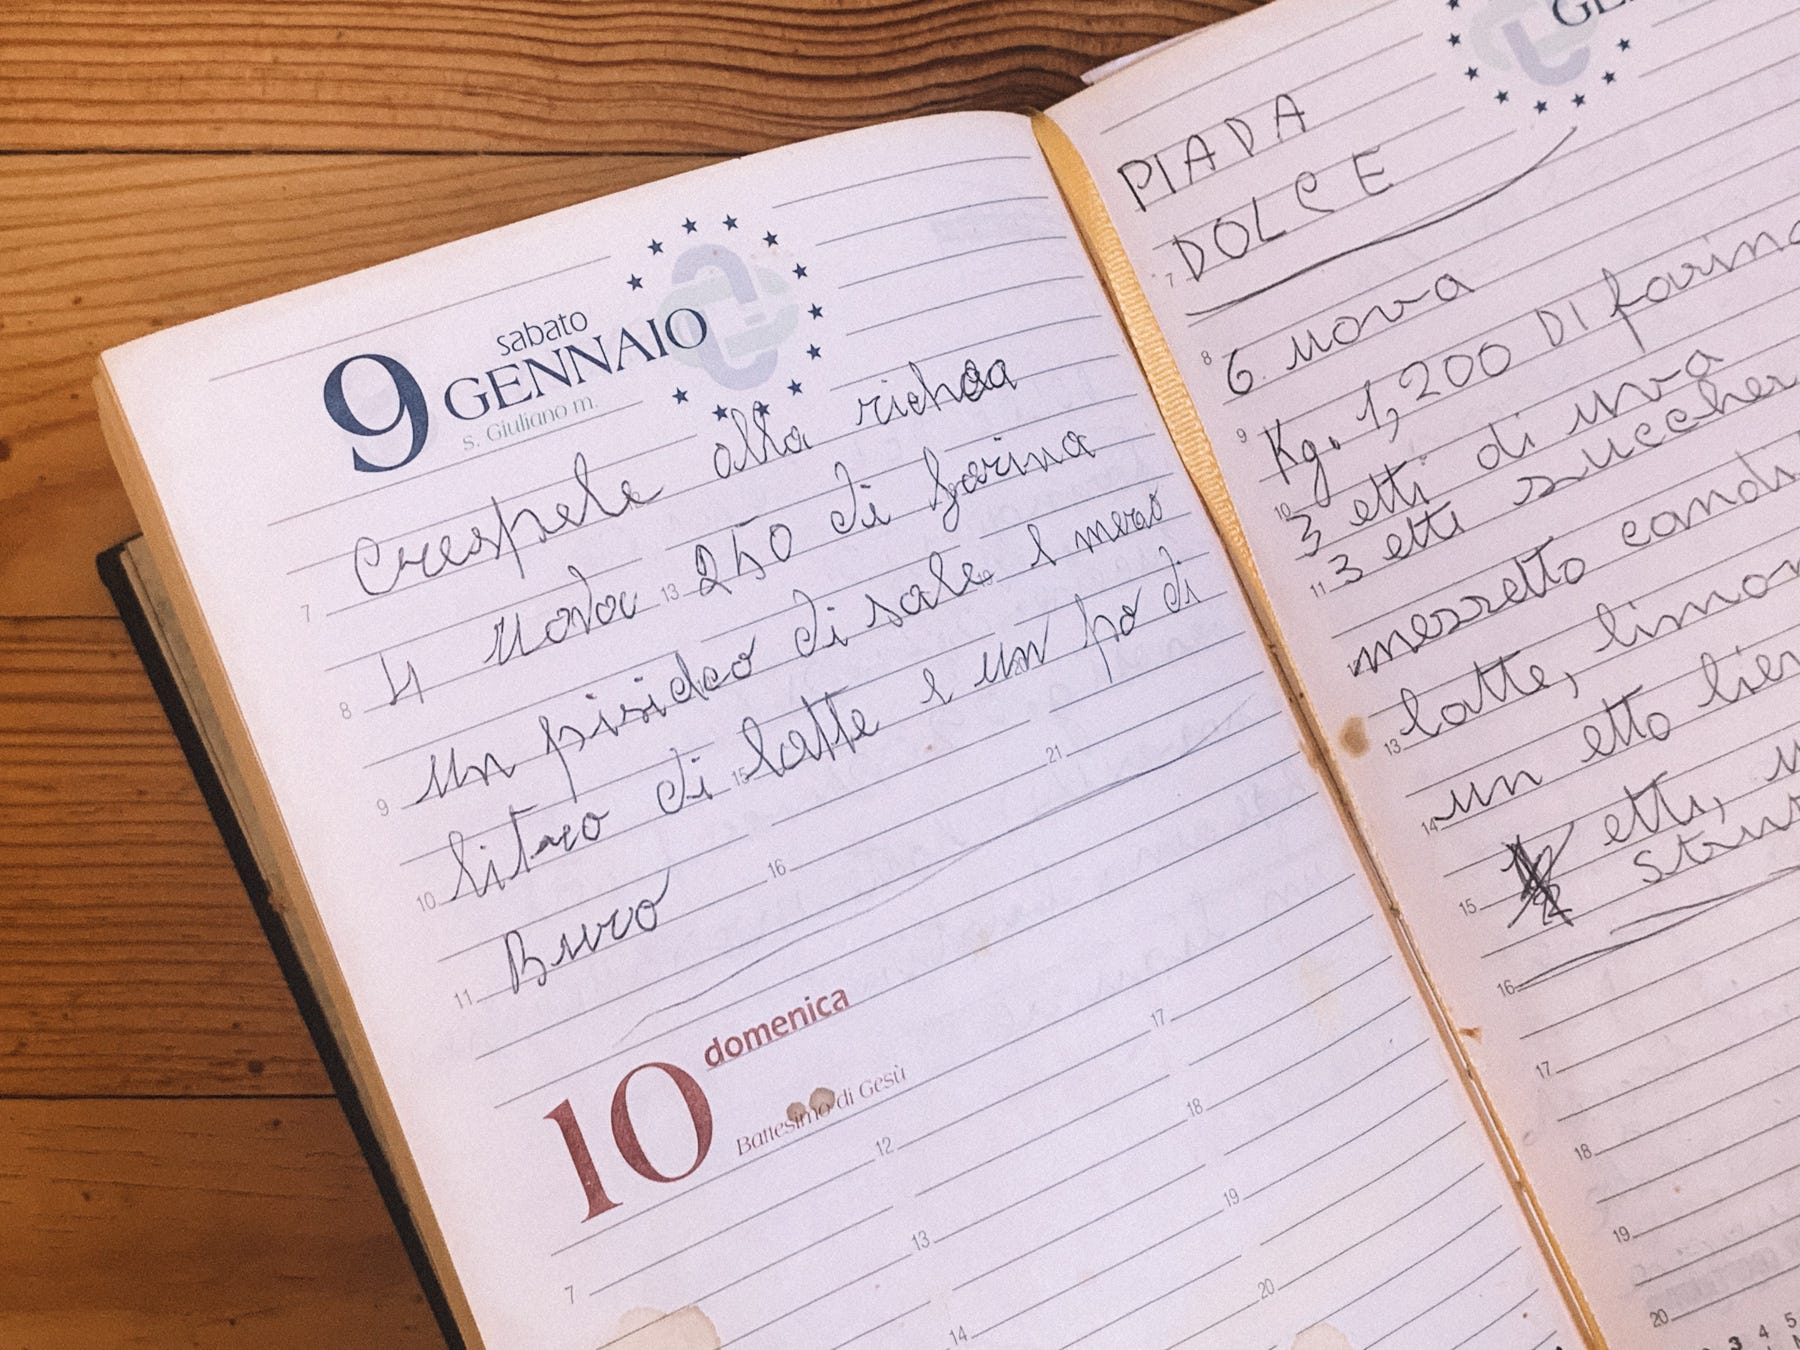 sabato
9 GENNAIO
s. Giuliano m.
Crespele alla richoa
4 Uova 250 di farina
un pisideo di sale e mezo
litro di latte e un po di
Buro
7
8
9
10
11
13
15
16
21
10 domenica
Battesimo di Gesù
12
17
7
13
18
14
19
20
PIADA
DOLCE
7
8 6. uova
9 Kg. 1,200 DI farina
10 3 etti di uva
11 3 etti zuccher
mezzetto candi
latte, limon
13
un etto liev
14
etti,
15 strut
16
17
18
19
20
3 4 5